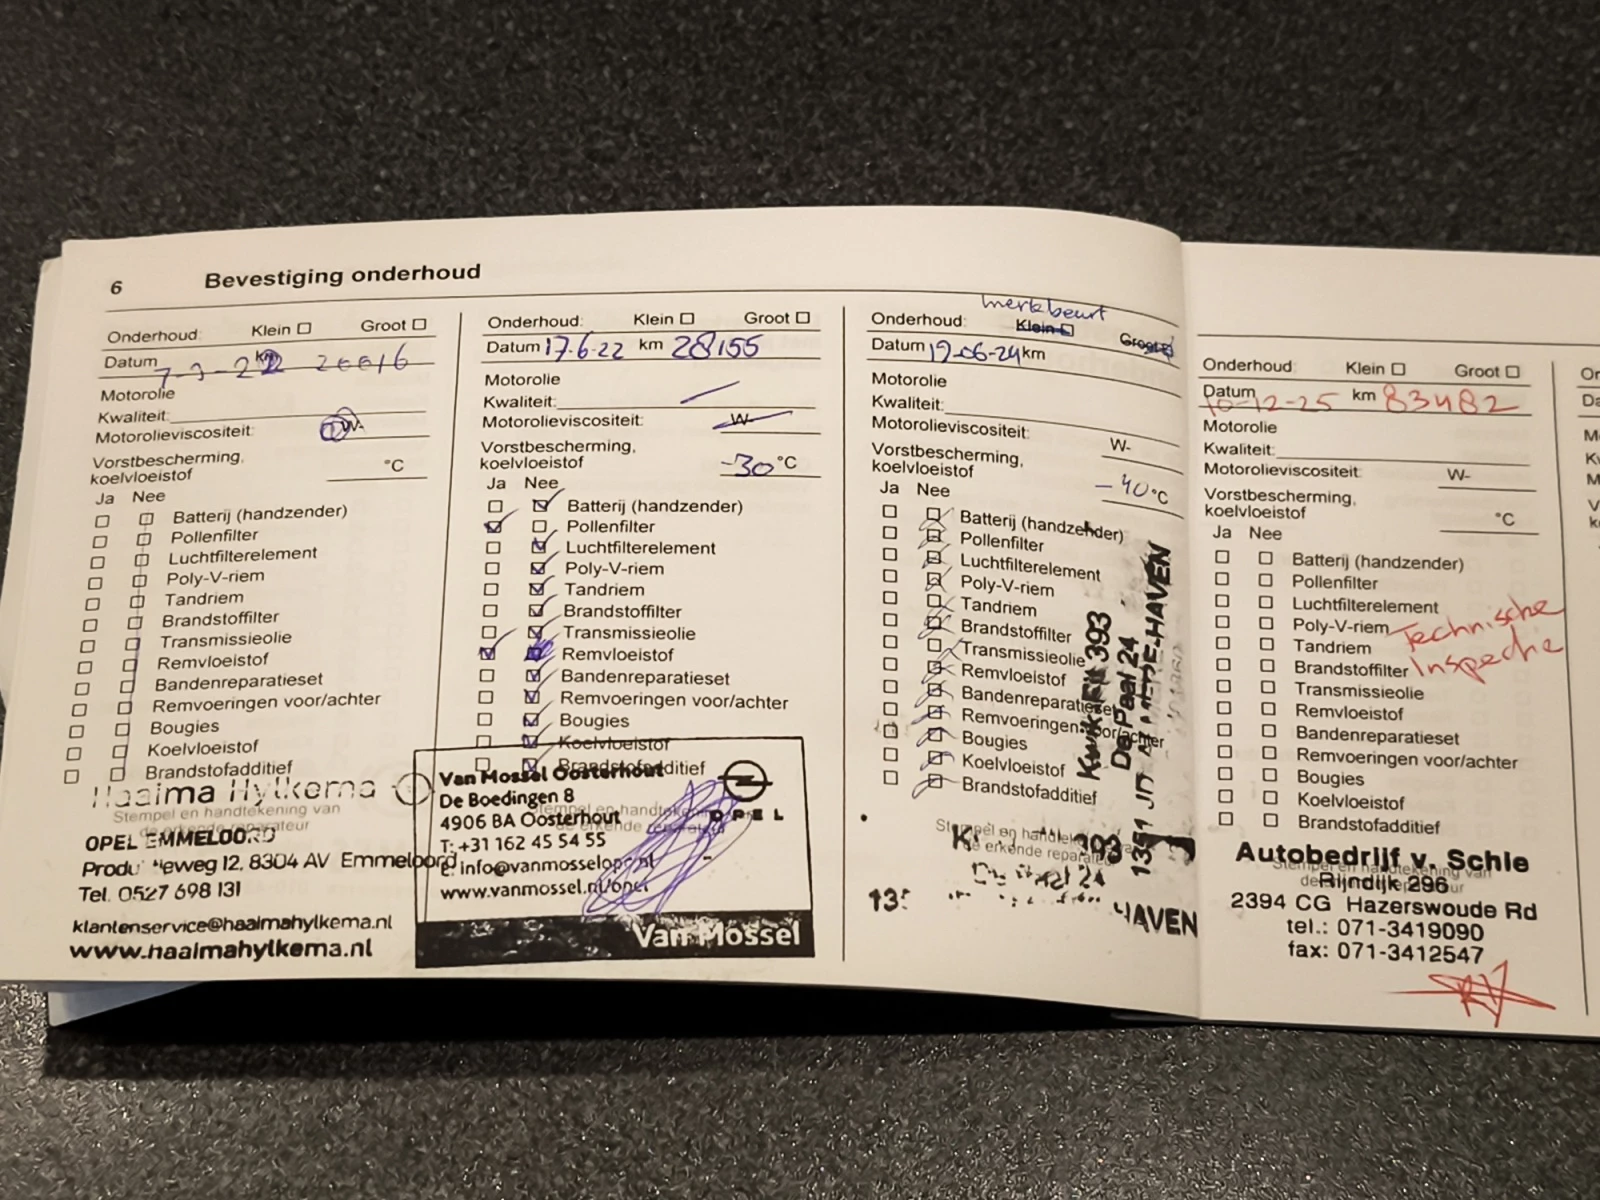 6 Bevestiging onderhoud
Onderhoud: Klein Groot
Datum 7-3-22 km 20016
Motorolie
Kwaliteit:
Motorolieviscositeit: W-
Vorstbescherming,
koelvloeistof °C
Ja Nee
Batterij (handzender)
Pollenfilter
Luchtfilterelement
Poly-V-riem
Tandriem
Brandstoffilter
Transmissieolie
Remvloeistof
Bandenreparatieset
Remvoeringen voor/achter
Bougies
Koelvloeistof
Brandstofadditief
Stempel en handtekening van
de erkende reparateur
Haaima Hylkema
OPEL EMMELOORD
8304 AV Emmeloord
Tel. 0527 698 131
klantenservice@haaimahylkema.nl
www.haaimahylkema.nl
Onderhoud: Klein Groot
Datum 17-6-22 km 28155
Motorolie
Kwaliteit:
Motorolieviscositeit: W-
Vorstbescherming,
koelvloeistof -30 °C
Ja Nee
Batterij (handzender)
Pollenfilter
Luchtfilterelement
Poly-V-riem
Tandriem
Brandstoffilter
Transmissieolie
Remvloeistof
Bandenreparatieset
Remvoeringen voor/achter
Bougies
Koelvloeistof
Brandstofadditief
Stempel en handtekening
de erkende reparateur
Van Mossel Oosterhout
De Boedingen 8
4906 BA Oosterhout
T: +31 162 45 54 55
E: info@vanmosselopel.nl
www.vanmossel.nl/opel
OPEL
Van Mossel
merkbeurt
Onderhoud: Klein Groot
Datum 19-06-24 km
Motorolie
Kwaliteit:
Motorolieviscositeit:
W-
Vorstbescherming,
koelvloeistof -40 °C
Ja Nee
Batterij (handzender)
Pollenfilter
Luchtfilterelement
Poly-V-riem
Tandriem
Brandstoffilter
Transmissieolie
Remvloeistof
Bandenreparatieset
Remvoeringen voor/achter
Bougies
Koelvloeistof
Brandstofadditief
Stempel en handtekening
de erkende reparateur
KwikFit 393
De Paal 24
1351 JD ALMERE-HAVEN
393
De Paal 24
HAVEN
Onderhoud: Klein Groot
Datum 10-12-25 km 83482
Motorolie
Kwaliteit:
Motorolieviscositeit: W-
Vorstbescherming,
koelvloeistof °C
Ja Nee
Batterij (handzender)
Pollenfilter
Luchtfilterelement
Poly-V-riem
Tandriem
Brandstoffilter
Transmissieolie
Remvloeistof
Bandenreparatieset
Remvoeringen voor/achter
Bougies
Koelvloeistof
Brandstofadditief
Technische
Inspectie
Stempel en handtekening van
de erkende reparateur
Autobedrijf v. Schie
Rijndijk 296
2394 CG Hazerswoude Rd
tel.: 071-3419090
fax: 071-3412547